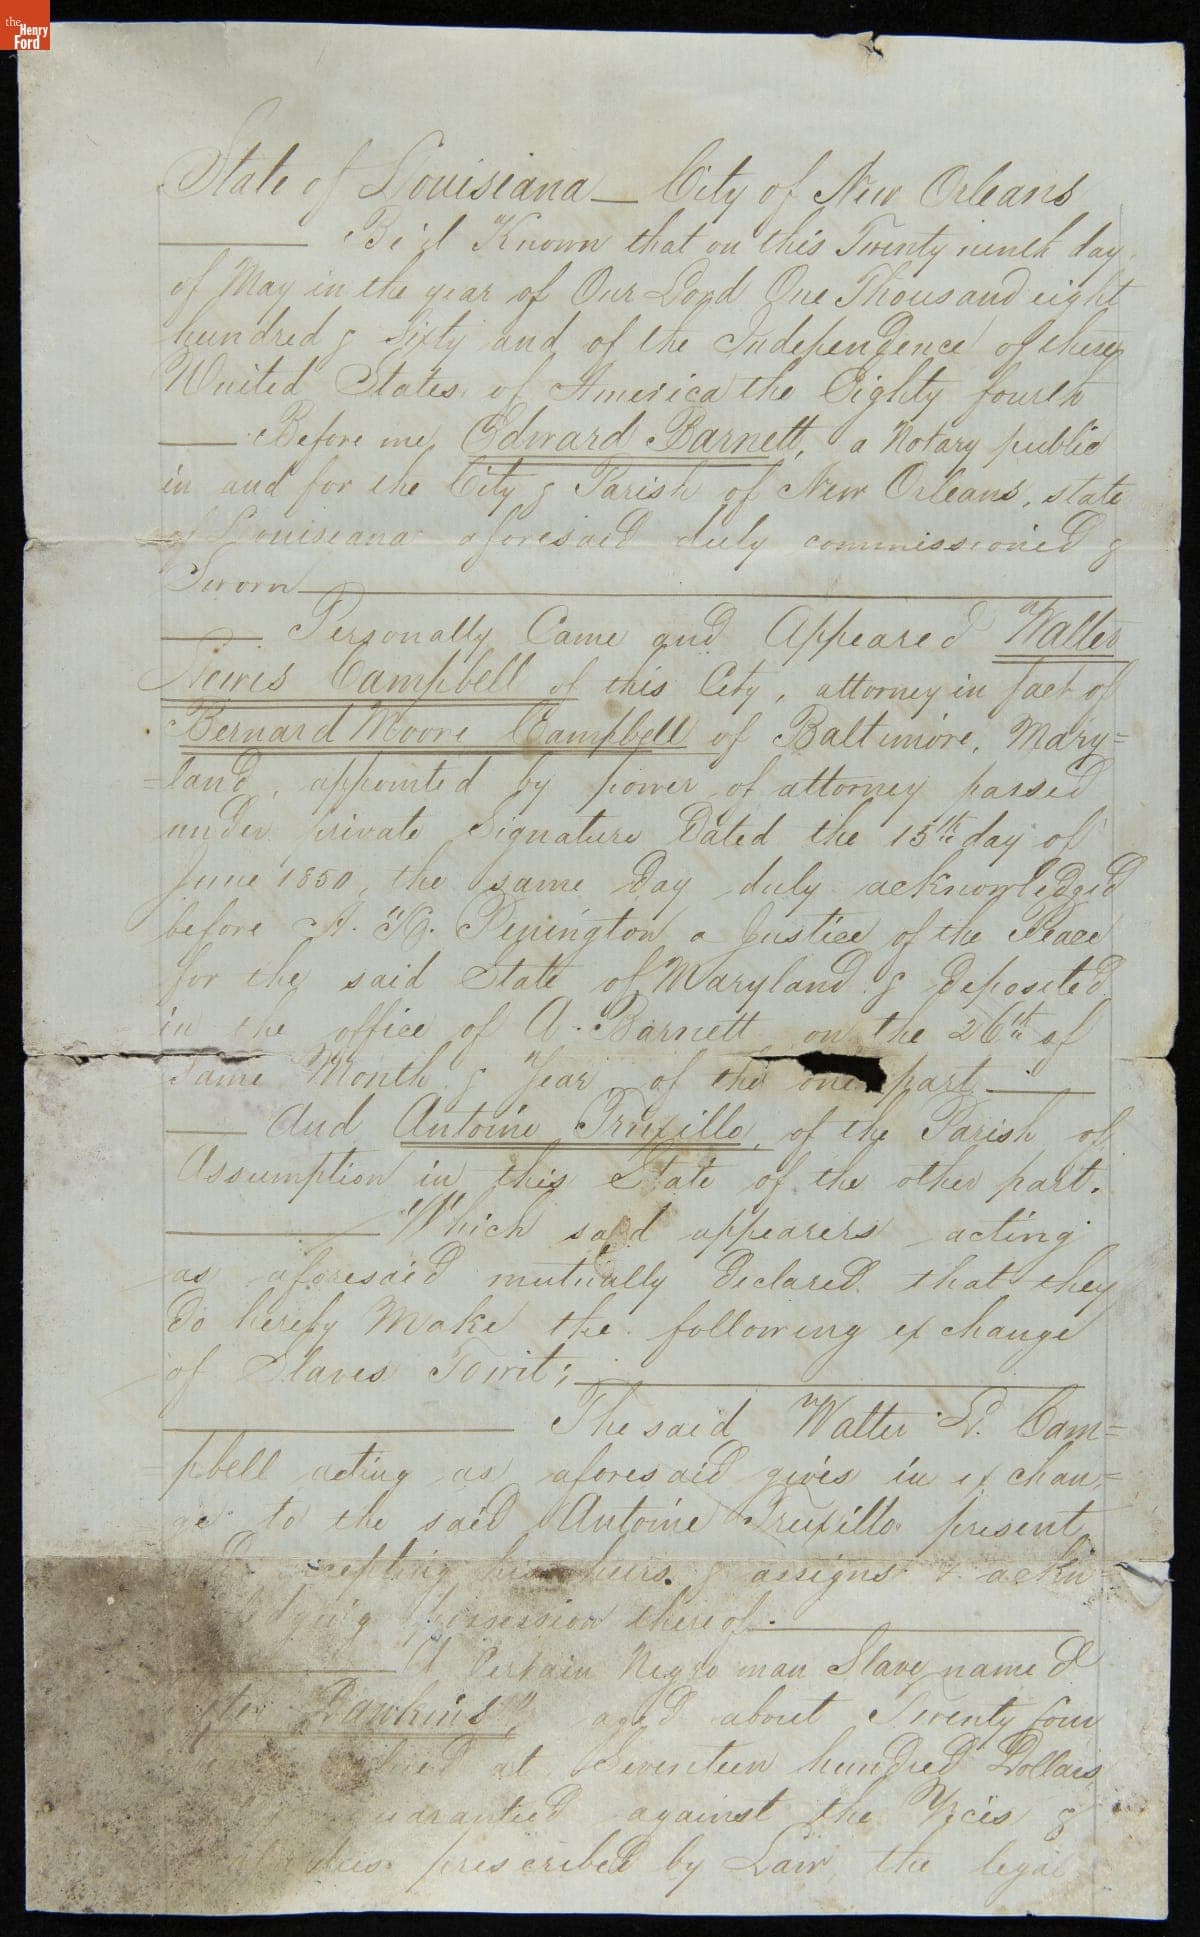 the Henry Ford
State of Louisiana — City of New Orleans
Be it Known that on this Twenty ninth day
of May in the year of Our Lord One Thousand eight
hundred & Sixty and of the Independence of these
United States of America the Eighty fourth
Before me, Edward Barnett, a Notary public
in and for the City & Parish of New Orleans, state
of Louisiana aforesaid duly commissioned &
Sworn
Personally Came and Appeared Walter
Lewis Campbell of this City, attorney in fact of
Bernard Moore Campbell of Baltimore, Mary=
=land, appointed by power of attorney passed
under private Signature Dated the 15th day of
June 1850, the same Day duly acknowledged
before A. H. Penington a Justice of the Peace
for the said State of Maryland & Deposited
in the office of A. Barnett on the 26th of
same Month & Year, of the one part
And Antoine Truxillo, of the Parish of
Assumption in this State of the other part.
Which said appearers acting
as aforesaid mutually Declared that they
Do hereby Make the following exchange
of Slaves Towit;
The said Walter L. Cam=
=pbell acting as aforesaid gives in exchan=
ge to the said Antoine Truxillo present
accepting his heirs & assigns & ackn=
possession thereof.
A Certain Negro man Slave named
Dawkins", aged about Twenty four
at Seventeen hundred Dollars
guarantied against the Vices &
prescribed by Law, the legal